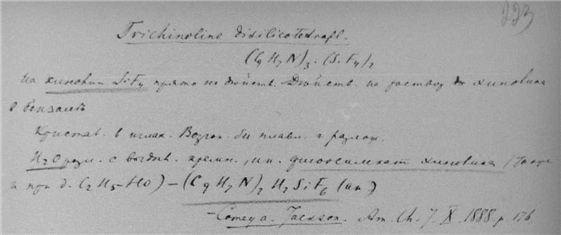 223
Trichinoline disilicotetrafl.
(C9 H7 N)3 . (Si F4)2
На хинолин SiF4 прямо не действ. Действ. на раствор хинолина
в бензоле
Кристал. в иглах. Возгон. без плавл. и разлож.
H2O разл. с выдел. кремн.
и при д. C2H5-HO) – (C9 H7 N)2 H2 Si F6 (ин)
– Comey a. Jackson. Am. Ch. J. X. 1888 p. 176